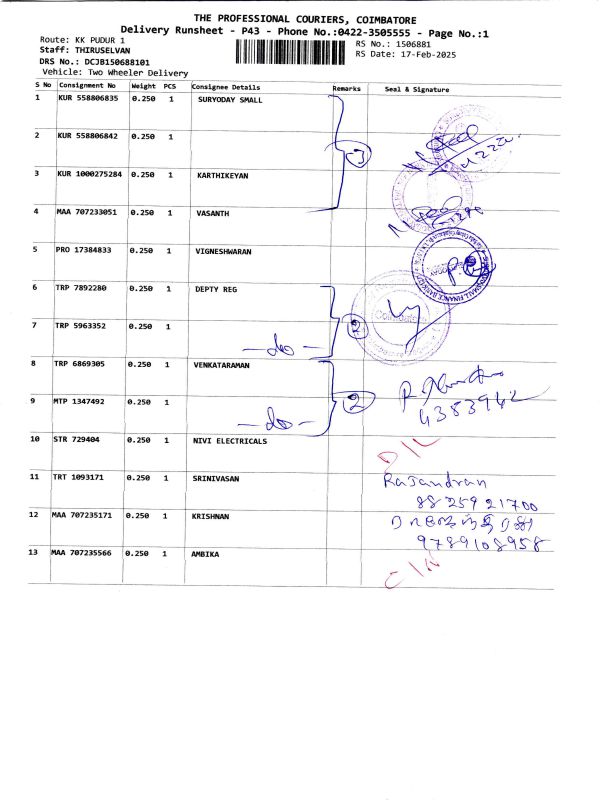 THE PROFESSIONAL COURIERS, COIMBATORE
Delivery Runsheet - P43 - Phone No.:0422-3505555 - Page No.:1
Route: KK PUDUR 1
RS No.: 1506881
Staff: THIRUSELVAN
RS Date: 17-Feb-2025
DRS No.: DCJB150688101
Vehicle: Two Wheeler Delivery
S No Consignment No Weight PCS Consignee Details Remarks Seal & Signature
1 KUR 558806835 0.250 1 SURYODAY SMALL
2 KUR 558806842 0.250 1
3
3 KUR 1000275284 0.250 1 KARTHIKEYAN
4 MAA 707233051 0.250 1 VASANTH
5 PRO 17384833 0.250 1 VIGNESHWARAN
6 TRP 7892280 0.250 1 DEPTY REG
7 TRP 5963352 0.250 1
2
—do—
8 TRP 6869305 0.250 1 VENKATARAMAN
9 MTP 1347492 0.250 1
2
4353942
—do—
10 STR 729404 0.250 1 NIVI ELECTRICALS
D/L
11 TRT 1093171 0.250 1 SRINIVASAN Rajandran
8825921700
12 MAA 707235171 0.250 1 KRISHNAN
9789108958
13 MAA 707235566 0.250 1 AMBIKA